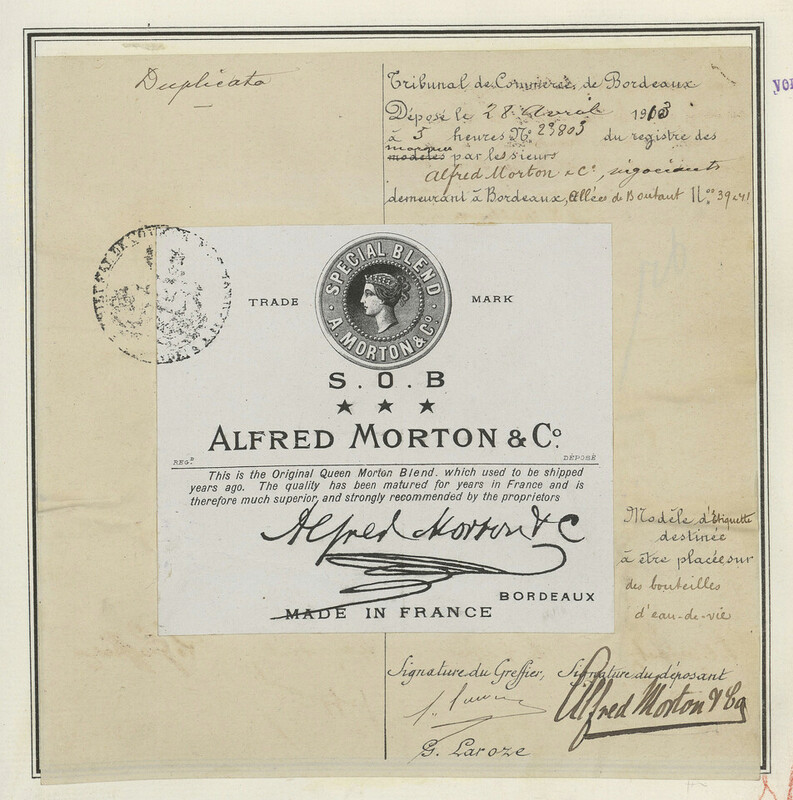 Duplicata
Tribunal de Commerce de Bordeaux
Déposé le 28 Avril 1913
à 5 heures No. 23803 du registre des
marques
modèles par les sieurs
Alfred Morton & Co, négociants
demeurant à Bordeaux, Allée de Boutaut Nos 39 & 41
SPECIAL BLEND
A MORTON & Co
TRADE MARK
S.O.B
ALFRED MORTON & Co.
REGD DÉPOSÉ
This is the Original Queen Morton Blend. which used to be shipped
years ago. The quality has been matured for years in France and is
therefore much superior, and strongly recommended by the proprietors
Alfred Morton & C
BORDEAUX
MADE IN FRANCE
Modèle d'Étiquette
destinée
à être placée sur
des bouteilles
d'eau-de-vie
Signature du Greffier, Signature du déposant
Alfred Morton & Co
G. Laroze